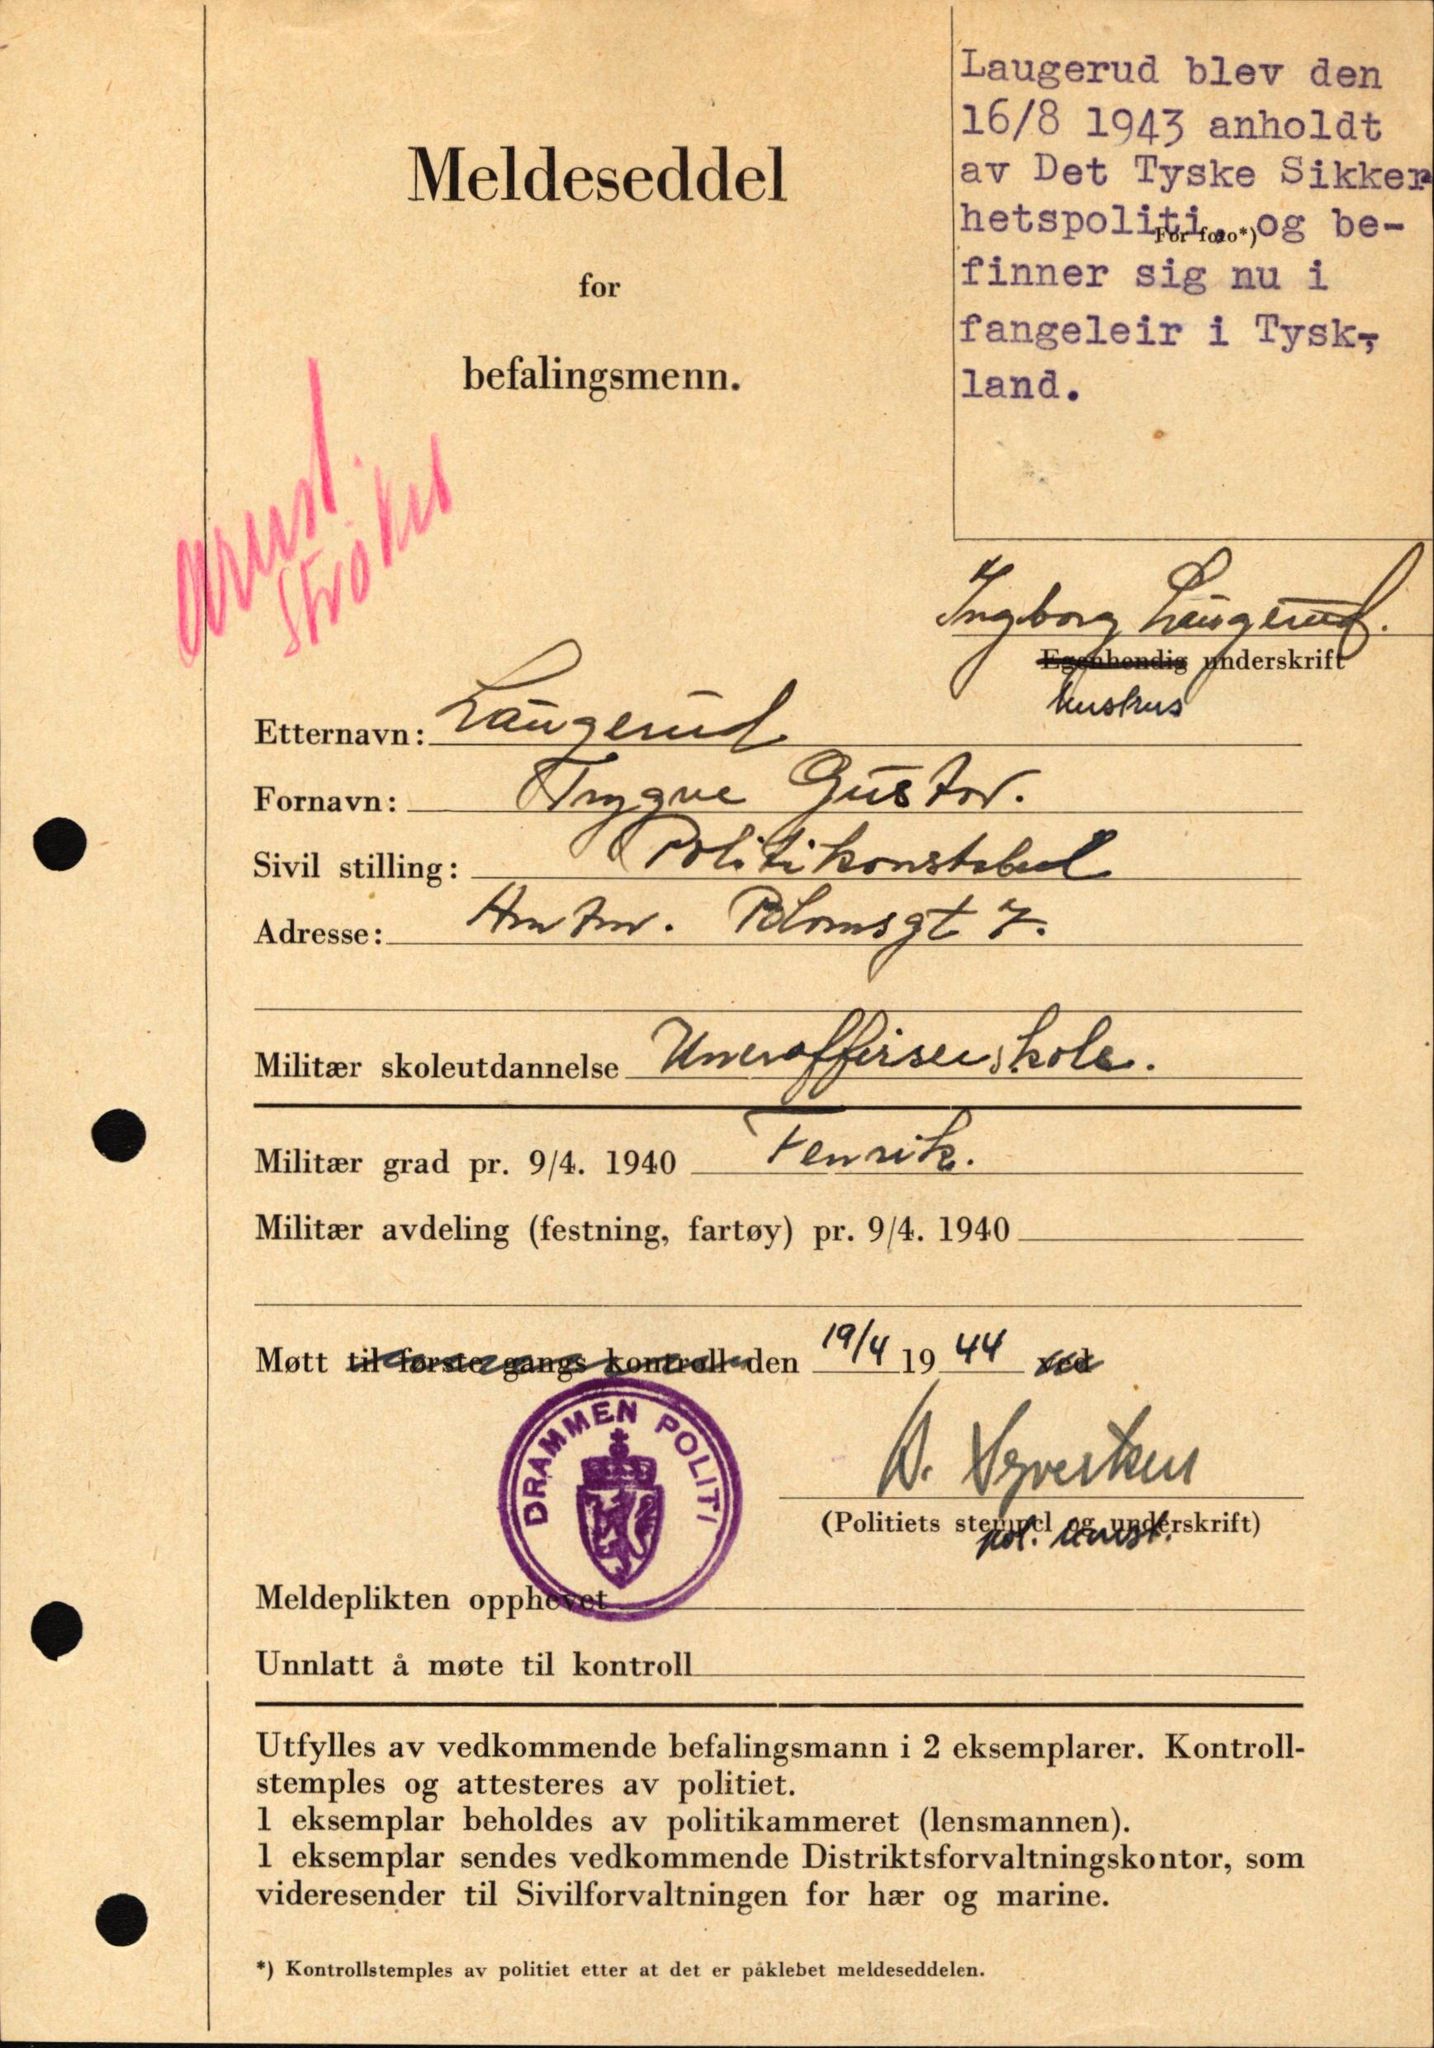 Meldeseddel
for
befalingsmenn.
Laugerud blev den
16/8 1943 anholdt
av Det Tyske Sikker
hetspoliti, og be-
For foto*)
finner sig nu i
fangeleir i Tysk-
land.
arrest
strøket
Ingborg Laugerud.
Egenhendig underskrift
hustrus
Etternavn: Laugerud
Fornavn: Trygve Gustav.
Sivil stilling: Politikonstabel
Adresse: Blomsgt 7.
Militær skoleutdannelse Underoffiserskole.
Militær grad pr. 9/4. 1940 Fenrik.
Militær avdeling (festning, fartøy) pr. 9/4. 1940
Møtt til første gangs kontroll den 19/4 1944 ved
DRAMMEN POLITI
(Politiets stempel og underskrift)
pol. konst.
Meldeplikten opphevet
Unnlatt å møte til kontroll
Utfylles av vedkommende befalingsmann i 2 eksemplarer. Kontroll-
stemples og attesteres av politiet.
1 eksemplar beholdes av politikammeret (lensmannen).
1 eksemplar sendes vedkommende Distriktsforvaltningskontor, som
videresender til Sivilforvaltningen for hær og marine.
*) Kontrollstemples av politiet etter at det er påklebet meldeseddelen.